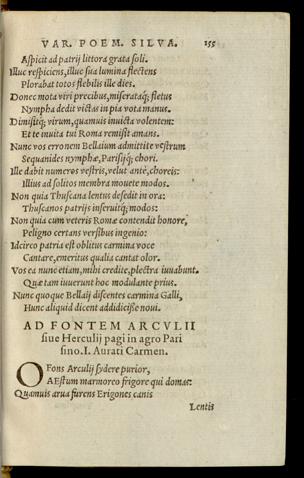 VAR. POEM. SILVA. 155
Aspicit ad patrij littora grata soli.
Illuc respiciens, illuc sua lumina flectens
Plorabat totos flebilis ille dies.
Donec mota viri precibus, miserataq; fletus
Nympha dedit victas in pia vota manus.
Dimisitq; virum, quamuis inuicta volentem:
Et te inuita tui Roma remisit amans.
Nunc vos erronem Bellaium admittite vestrum
Sequanides nymphæ, Parisijq; chori.
Ille dabit numeros vestris, velut antè, choreis:
Illius ad solitos membra mouete modos.
Non quia Thuscana lentus desedit in ora:
Thuscanos patrijs inseruitq; modos:
Non quia cum veteris Romæ contendit honore,
Peligno certans versibus ingenio:
Idcirco patria est oblitus carmina voce
Cantare, emeritus qualia cantat olor.
Vos ea nunc etiam, mihi credite, plectra iuuabunt.
Quæ tam iuuerunt hoc modulante prius.
Nunc quoque Bellaij discentes carmina Galli,
Hunc aliquid dicent addidicisse noui.
AD FONTEM ARCVLII
siue Herculij pagi in agro Pari
sino. I. Aurati Carmen.
O Fons Arculij sydere purior,
AEstum marmoreo frigore qui domas:
Quamuis arua furens Erigones canis
Lentis